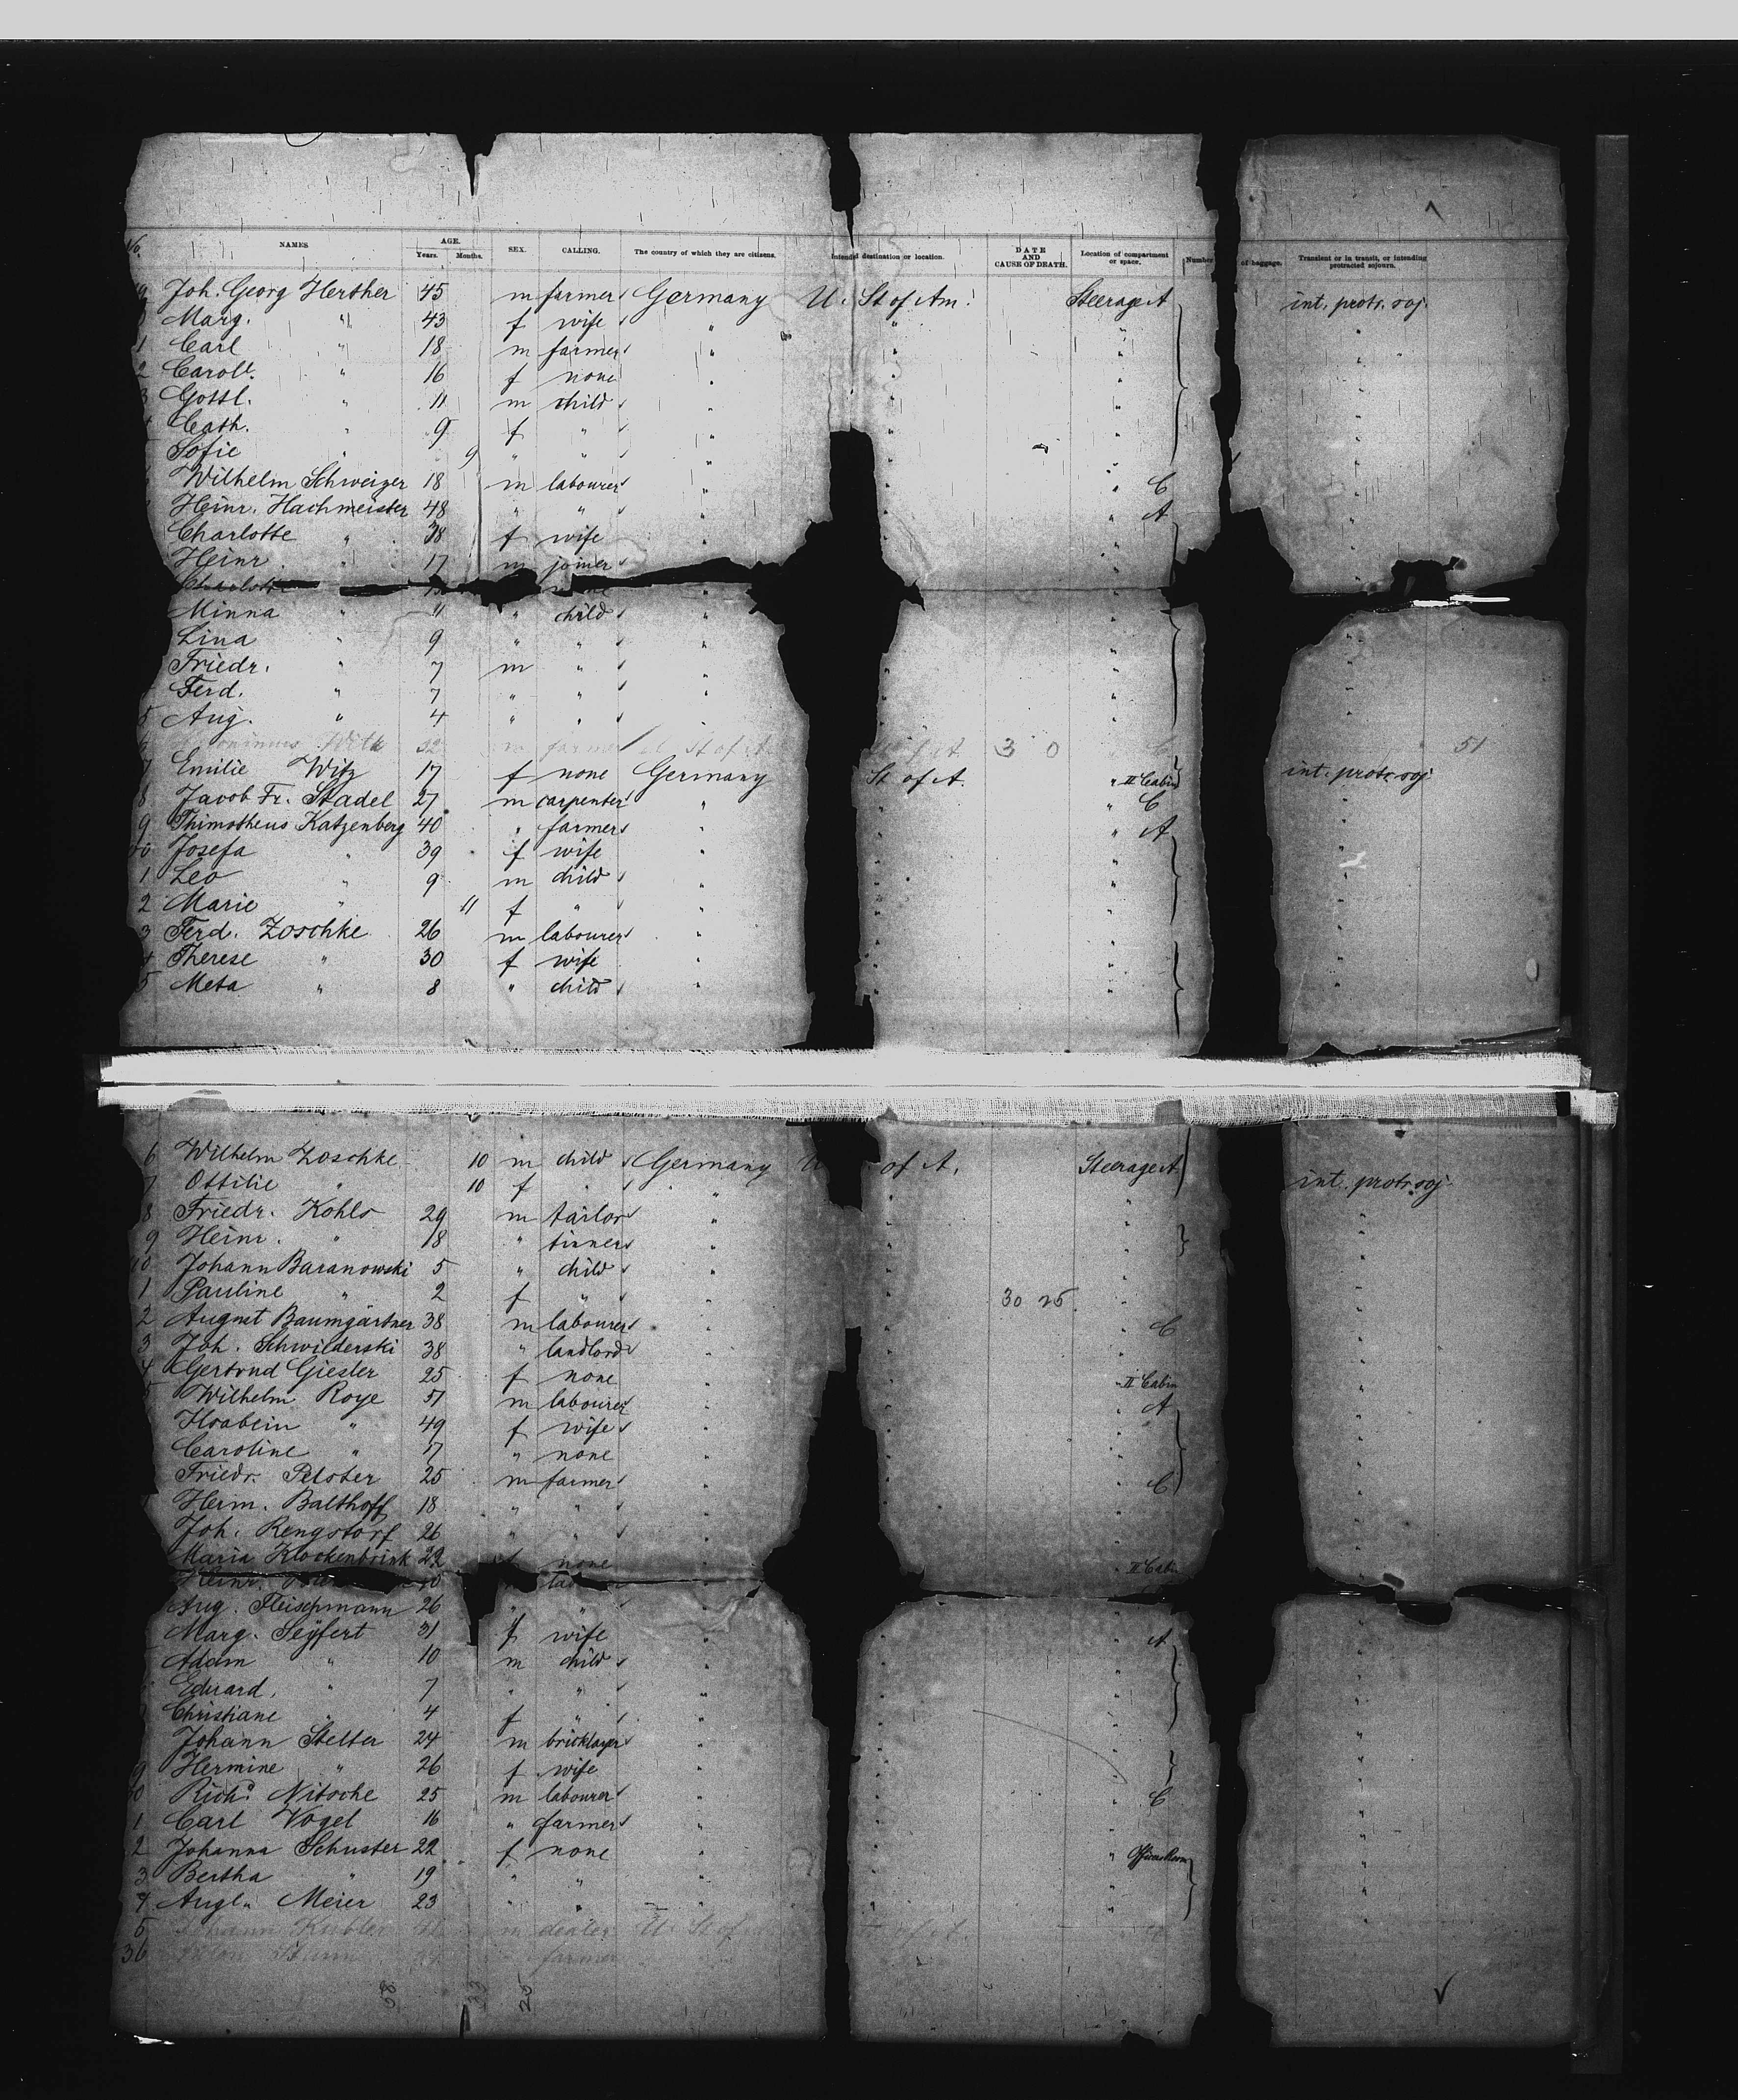 No. NAMES AGE. Years. Months. SEX. CALLING. The country of which they are citizens. Intended destination or location. DATE AND CAUSE OF DEATH. Location of compartment or space. Number of baggage. Transient or in transit, or intending protracted sojourn.
Joh. Georg Herther 45 m farmer Germany U. St of Am. Steerage A int. protr. soj.
Marg. " 43 f wife " " " "
1 Carl " 18 m farmer " " " "
2 Caroll. " 16 f none " " " "
3 Gottl. " 11 m child " " " "
Cath. " 9 f " " " " "
Sofie " 9 " " " " " "
Wilhelm Schweizer 18 m labourer " " " C "
Heinr. Hachmeister 48 " " " " " A "
Charlotte " 38 f wife " " " "
Heinr. " 17 m joiner " " "
Minna " 11 " child " " "
Lina " 9 " " " " " "
Friedr. " 7 m " " " " "
Ferd. " 7 " " " " " "
5 Aug. " 4 " " " " " "
Witk 32 m farmer U St of A 3 0 " C 51
7 Emilie Witz 17 f none Germany St of A. " II Cabin int. protr. soj.
8 Jacob Fr. Stadel 27 m carpenter " " " C "
9 Thimotheus Katzenberg 40 " farmer " " " A "
Josefa " 39 f wife " " " "
1 Leo " 9 m child " " " "
2 Marie " 11 f " " " " "
3 Ferd. Zoschke 26 m labourer " " " "
4 Therese " 30 f wife " " " "
5 Meta " 8 " child " " " "
6 Wilhelm Zoschke 10 m child Germany U of A. Steerage A int. protr. soj.
7 Ottilie " 10 f " " " " "
8 Friedr. Kohls 29 m tailor " " " "
9 Heinr. " 18 " tinner " " "
10 Johann Baranowski 5 " child " " " "
1 Pauline " 2 f " " " 30 25 " "
2 August Baumgärtner 38 m labourer " " " C "
3 Joh. Schwilderski 38 " landlord " " " "
4 Gertrud Giesler 25 f none " " " II Cabin "
5 Wilhelm Roye 51 m labourer " " " A "
" 49 f wife " " " "
Caroline " 17 " none " " " "
Friedr. Pelster 25 m farmer " " " C "
Herm. Balthoff 18 " " " " " "
Joh. Rengstorf 26 " " " " " "
Maria Klockenbrink 22 f none " " " II Cab. "
Heinr.
Aug. Fleischmann 26 " " " " "
Marg. Seyfert 31 f wife " " " A "
Adam " 10 m child " " " "
Eduard. " 7 " " " " " "
Christiane " 4 f " " " " "
Johann Stelter 24 m bricklayer " " " "
9 Hermine " 26 f wife " " " "
Richd. Nitsche 25 m labourer " " " C "
1 Carl Vogel 16 " farmer " " " "
2 Johanna Schuster 22 f none " " " "
3 Bertha " 19 " " " " " "
4 Meier 23 " " " " "
5 Johann Kubler m dealer U. St of
36 farmer
38 33 25